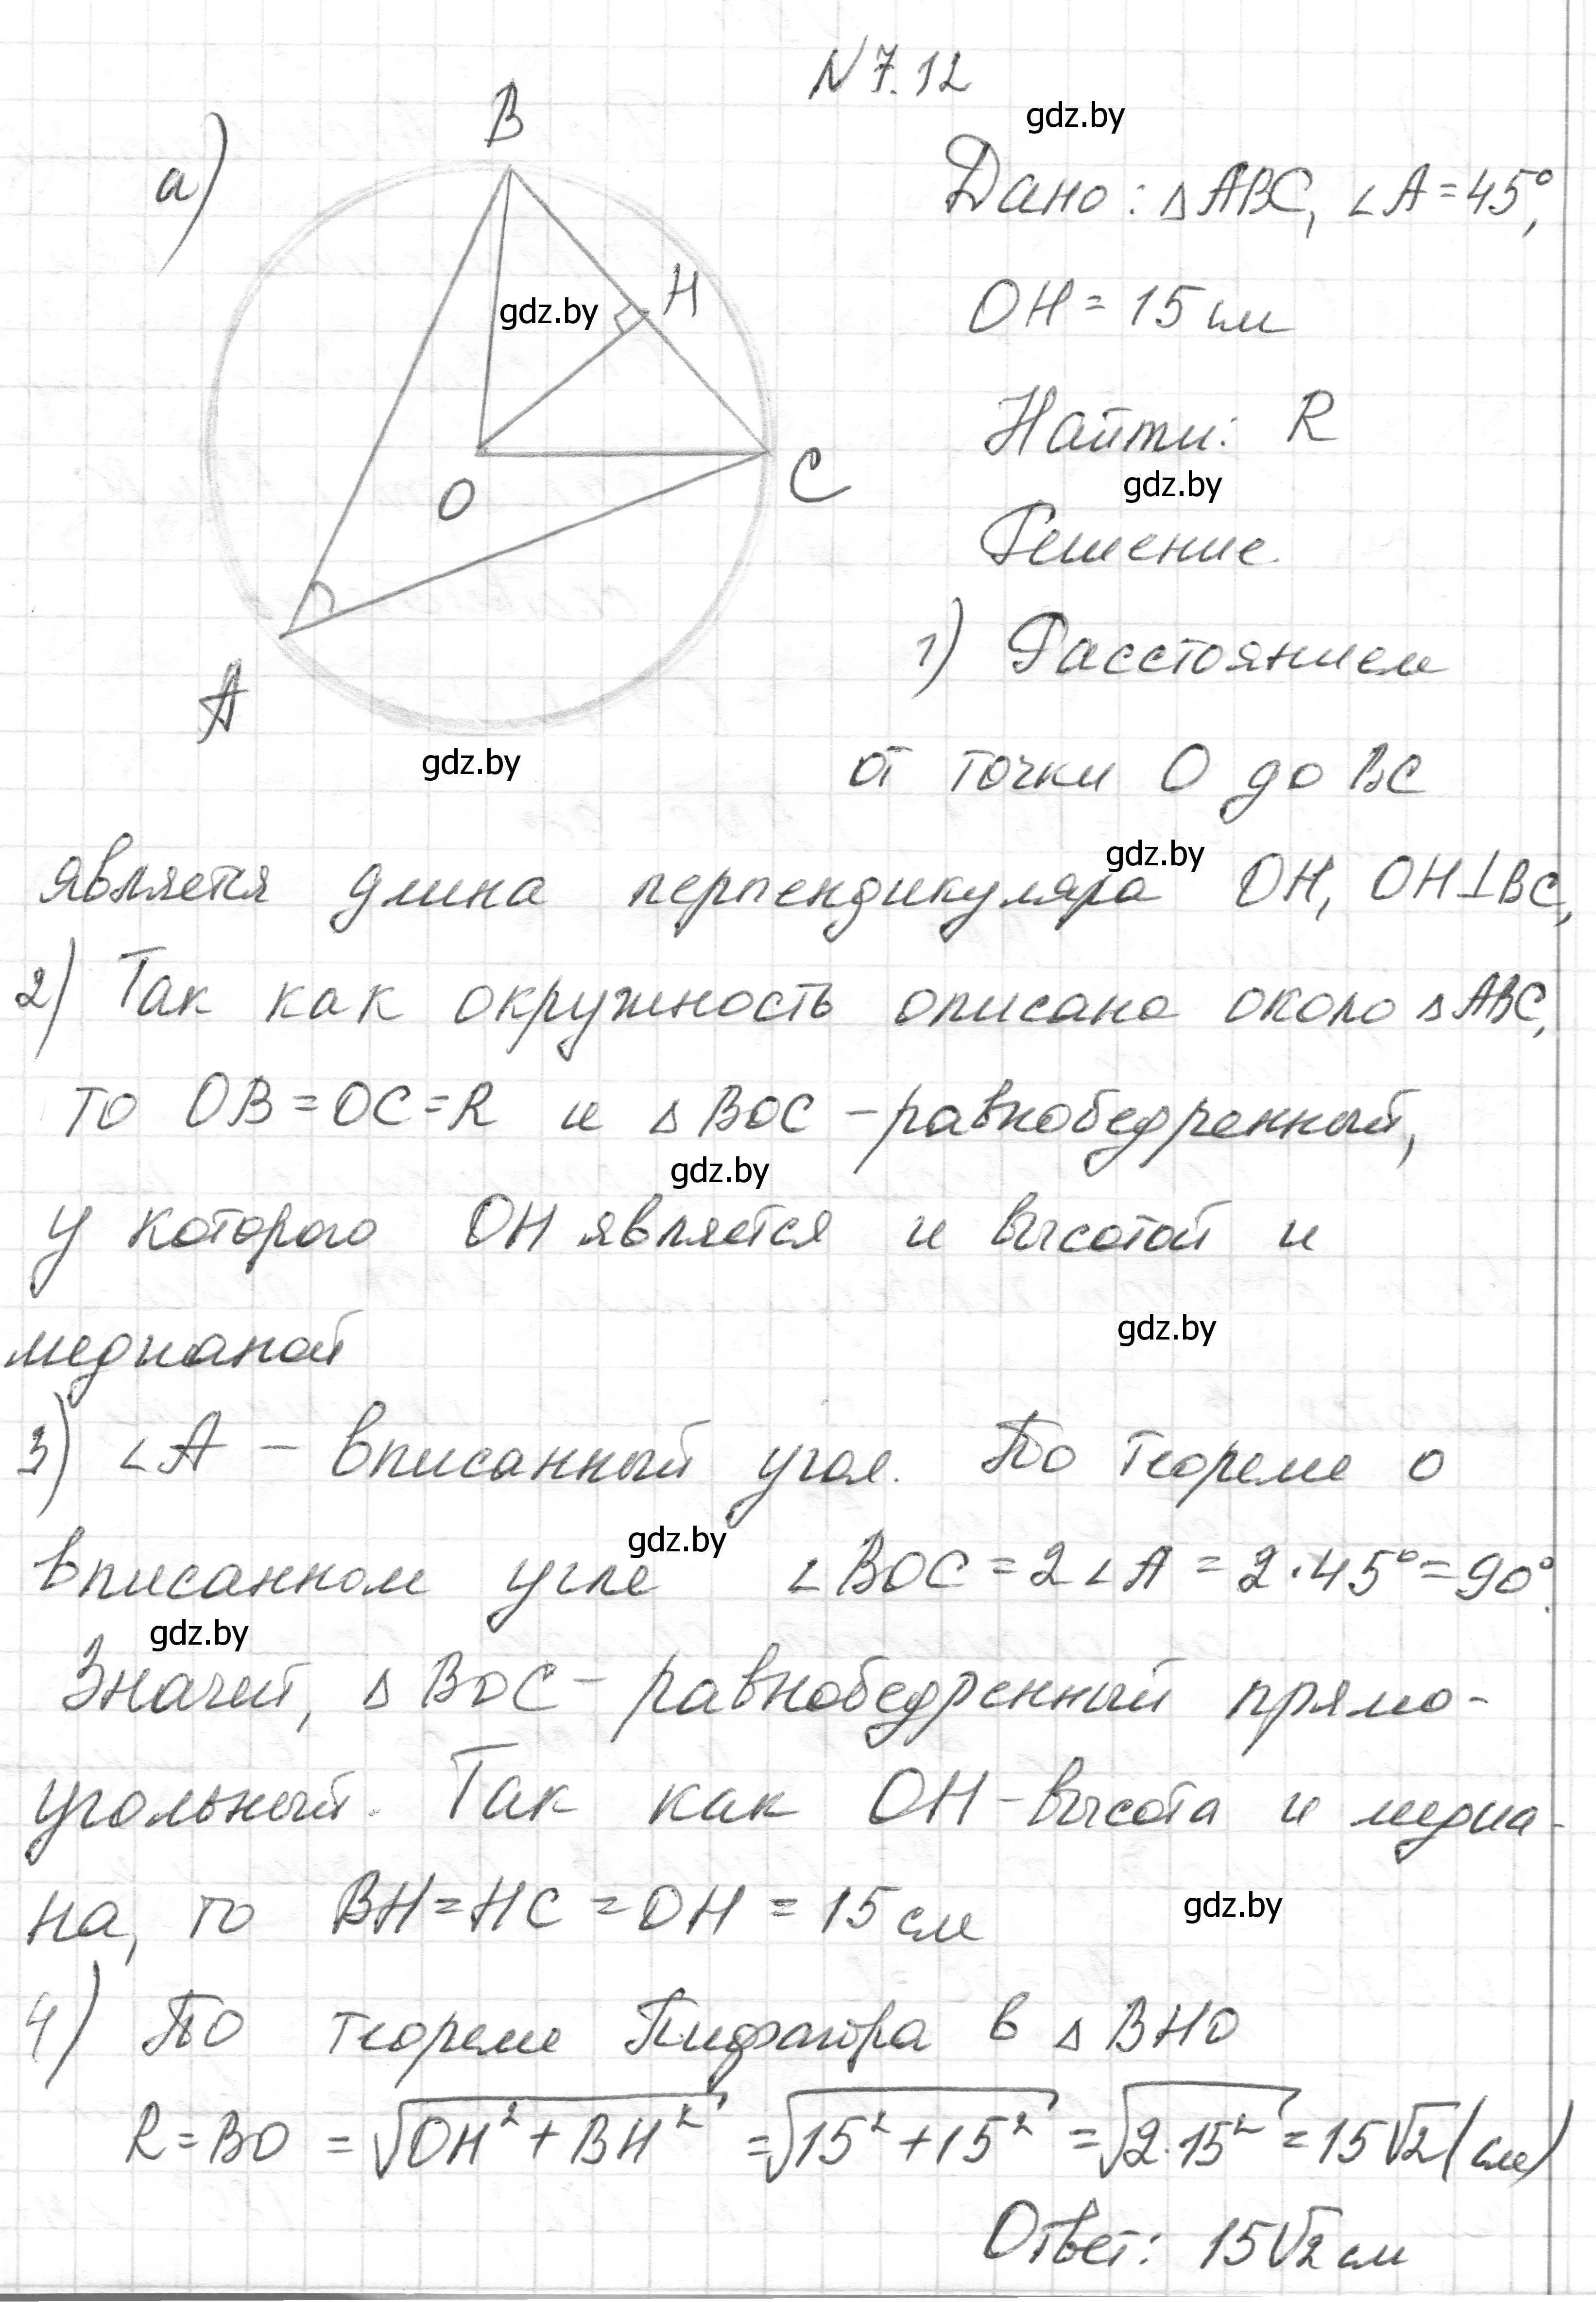 N 7.12
gdz.by
а)
B
Дано: △ABC, ∠A = 45°,
gdz.by
H
OH = 15 см
Найти: R
gdz.by
O
C
Решение.
A
1) Расстоянием
gdz.by
от точки O до BC
gdz.by
является длина перпендикуляра OH, OH⊥BC,
2) Так как окружность описана около △ABC,
то OB = OC = R и △BOC - равнобедренный,
gdz.by
у которого OH является и высотой и
gdz.by
медианой
3) ∠A - вписанный угол. По теореме о
gdz.by
вписанном угле ∠BOC = 2∠A = 2·45° = 90°.
gdz.by
Значит, △BOC - равнобедренный прямо-
угольный. Так как OH - высота и медиа-
на, то BH = HC = OH = 15 см
gdz.by
4) По теореме Пифагора в △BHO
R = BO = √(OH² + BH²) = √(15² + 15²) = √(2·15²) = 15√2 (см)
Ответ: 15√2 см